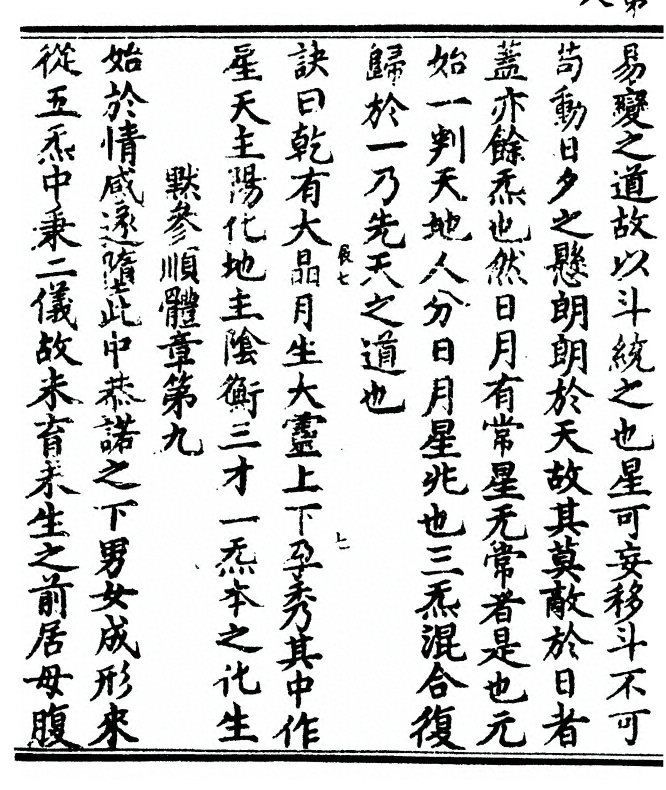 易變之道故以斗統之也星可妄移斗不可
苟動日夕之懸朗朗於天故其莫敵於日者
蓋亦餘炁也然日月有常星无常者是也元
始一判天地人分日月星兆也三炁混合復
歸於一乃先天之道也
訣曰乾有大晶月生大靈上下孕秀其中作
星天主陽化地主陰衡三才一炁本之訛生
默參順體章第九
始於情感遂墮此中恭諾之下男女成形來
從五炁中秉二儀故未育未生之前居母腹